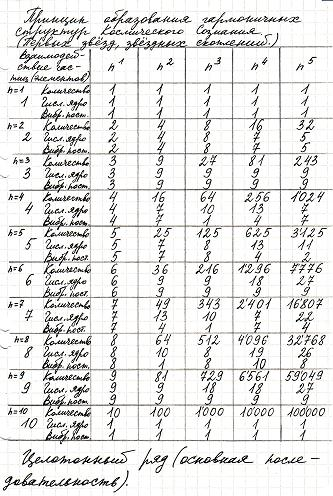 Принцип образования гармоничных
структур Космического Сознания.
(Первых звёзд, звёздных скоплений.)
Взаимодей-
ствие час-
тиц (элементов) n¹ n² n³ n⁴ n⁵
n=1 Количество 1 1 1 1 1
1 Числ. ядро 1 1 1 1 1
Вибр. пост. 1 1 1 1 1
n=2 Количество 2 4 8 16 32
2 Числ. ядро 2 4 8 7 5
Вибр. пост. 2 4 8 7 5
n=3 Количество 3 9 27 81 243
3 Числ. ядро 3 9 9 9 9
Вибр. пост. 3 9 9 9 9
n=4 Количество 4 16 64 256 1'024
4 Числ. ядро 4 7 10 13 7
Вибр. пост. 4 7 1 4 7
n=5 Количество 5 25 125 625 3'125
5 Числ. ядро 5 7 8 13 11
Вибр. пост. 5 7 8 4 2
n=6 Количество 6 36 216 1296 7776
6 Числ. ядро 6 9 9 18 27
Вибр. пост. 6 9 9 9 9
n=7 Количество 7 49 343 2'401 16807
7 Числ. ядро 7 13 10 7 22
Вибр. пост. 7 4 1 7 4
n=8 Количество 8 64 512 4096 32768
8 Числ. ядро 8 10 8 19 26
Вибр. пост. 8 1 8 10 8
n=9 Количество 9 81 729 6561 59049
9 Числ. ядро 9 9 18 18 27
Вибр. пост. 9 9 9 9 9
n=10 Количество 10 100 1'000 10'000 100'000
10 Числ. ядро 1 1 1 1 1
Вибр. пост. 1 1 1 1 1
Целотонный ряд (основная после-
довательность).